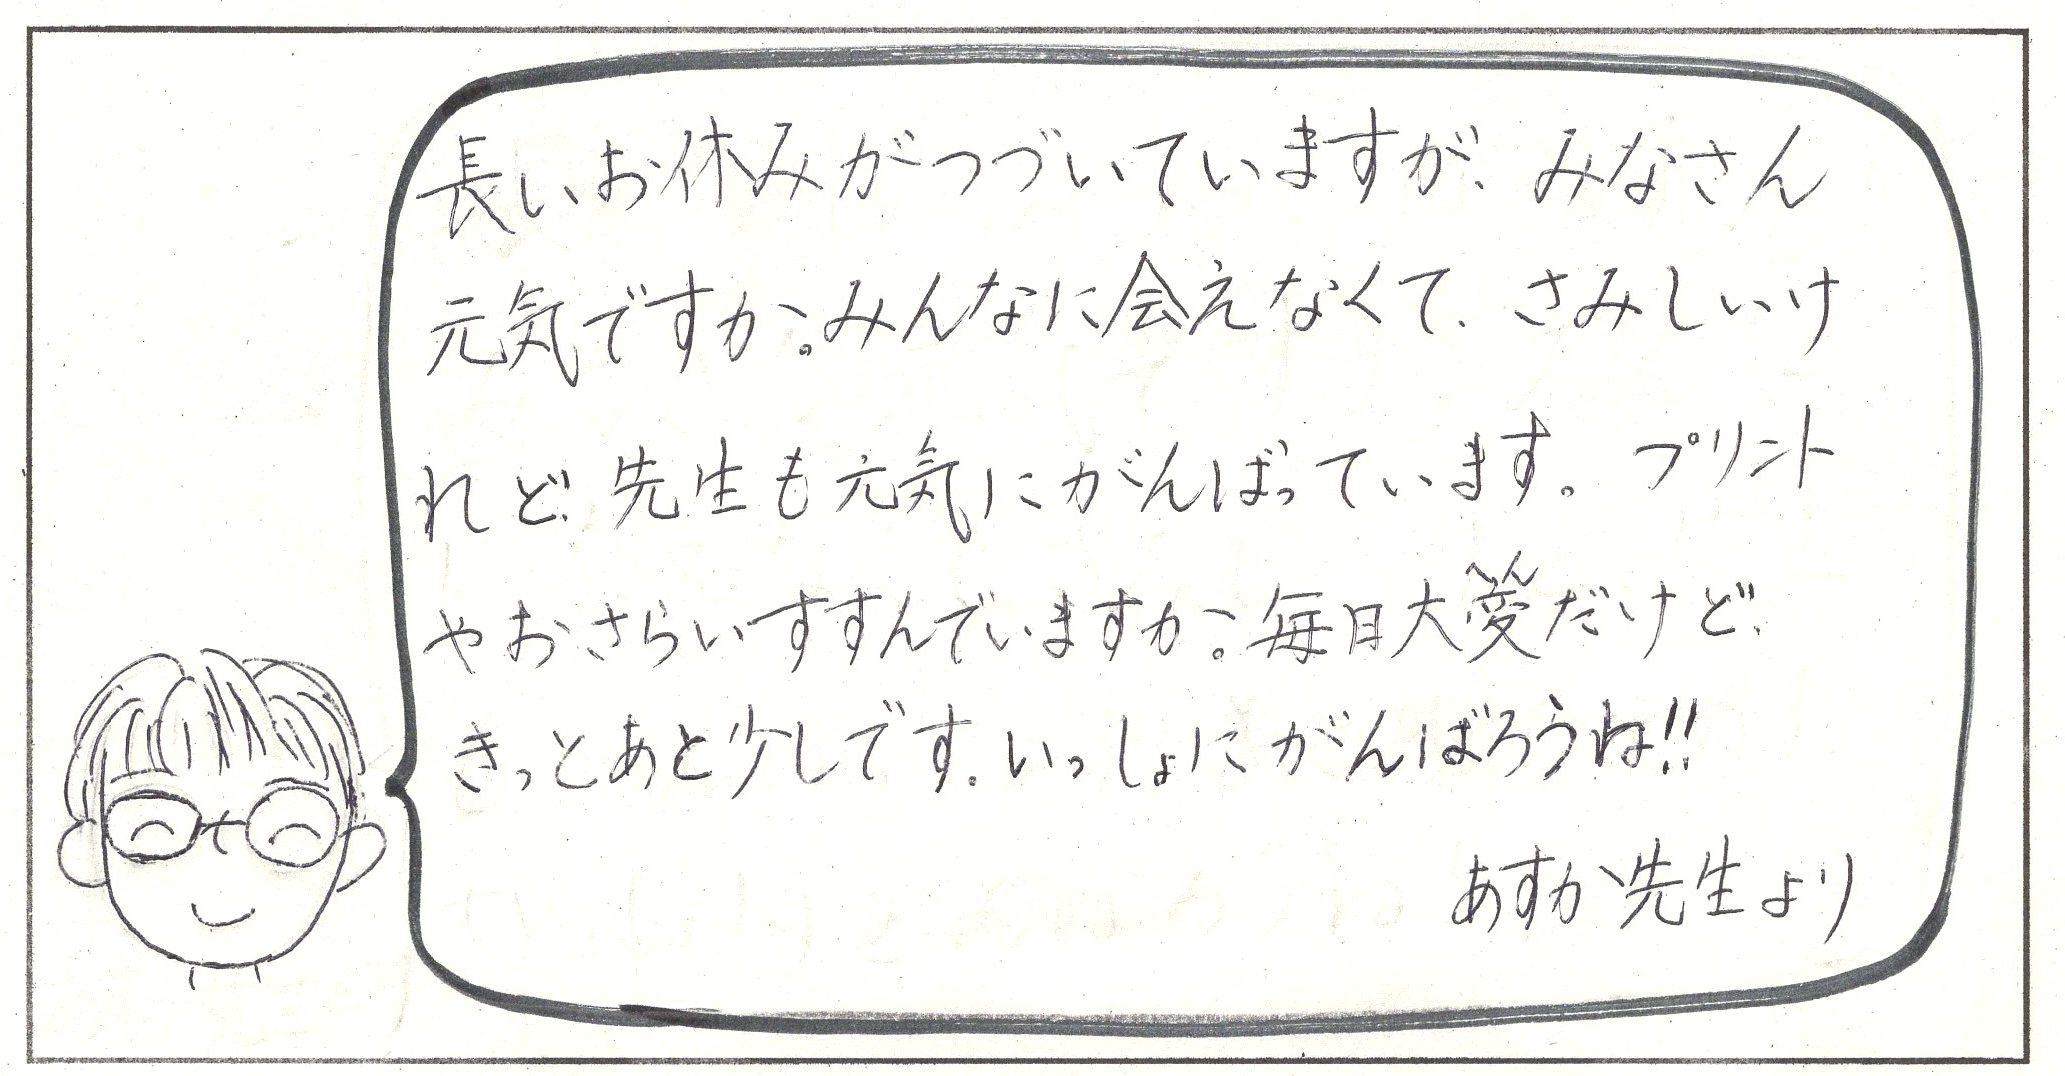 長いお休みがつづいていますが、みなさん
元気ですか。みんなに会えなくて、さみしいけ
れど、先生も元気にがんばっています。プリント
やおさらいすすんでいますか。毎日大変だけど、
へん
きっとあと少しです。いっしょにがんばろうね!!
あすか先生より